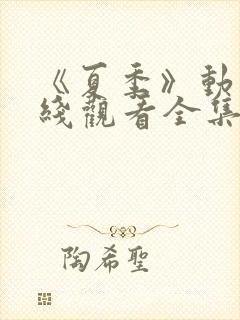 《夏季》動
綫觀看全集
陶希聖